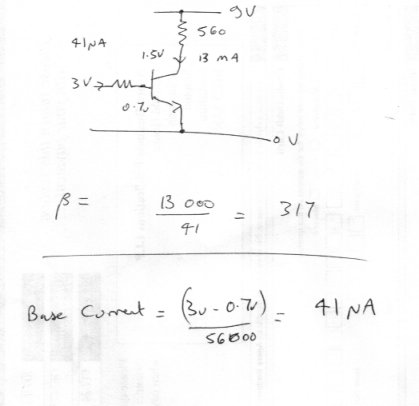 9V
560
41µA
1.5V
13 mA
3V
0.7v
0V
β = 13 000 / 41 = 317
Base Current = (3v - 0.7v) / 56000 = 41µA